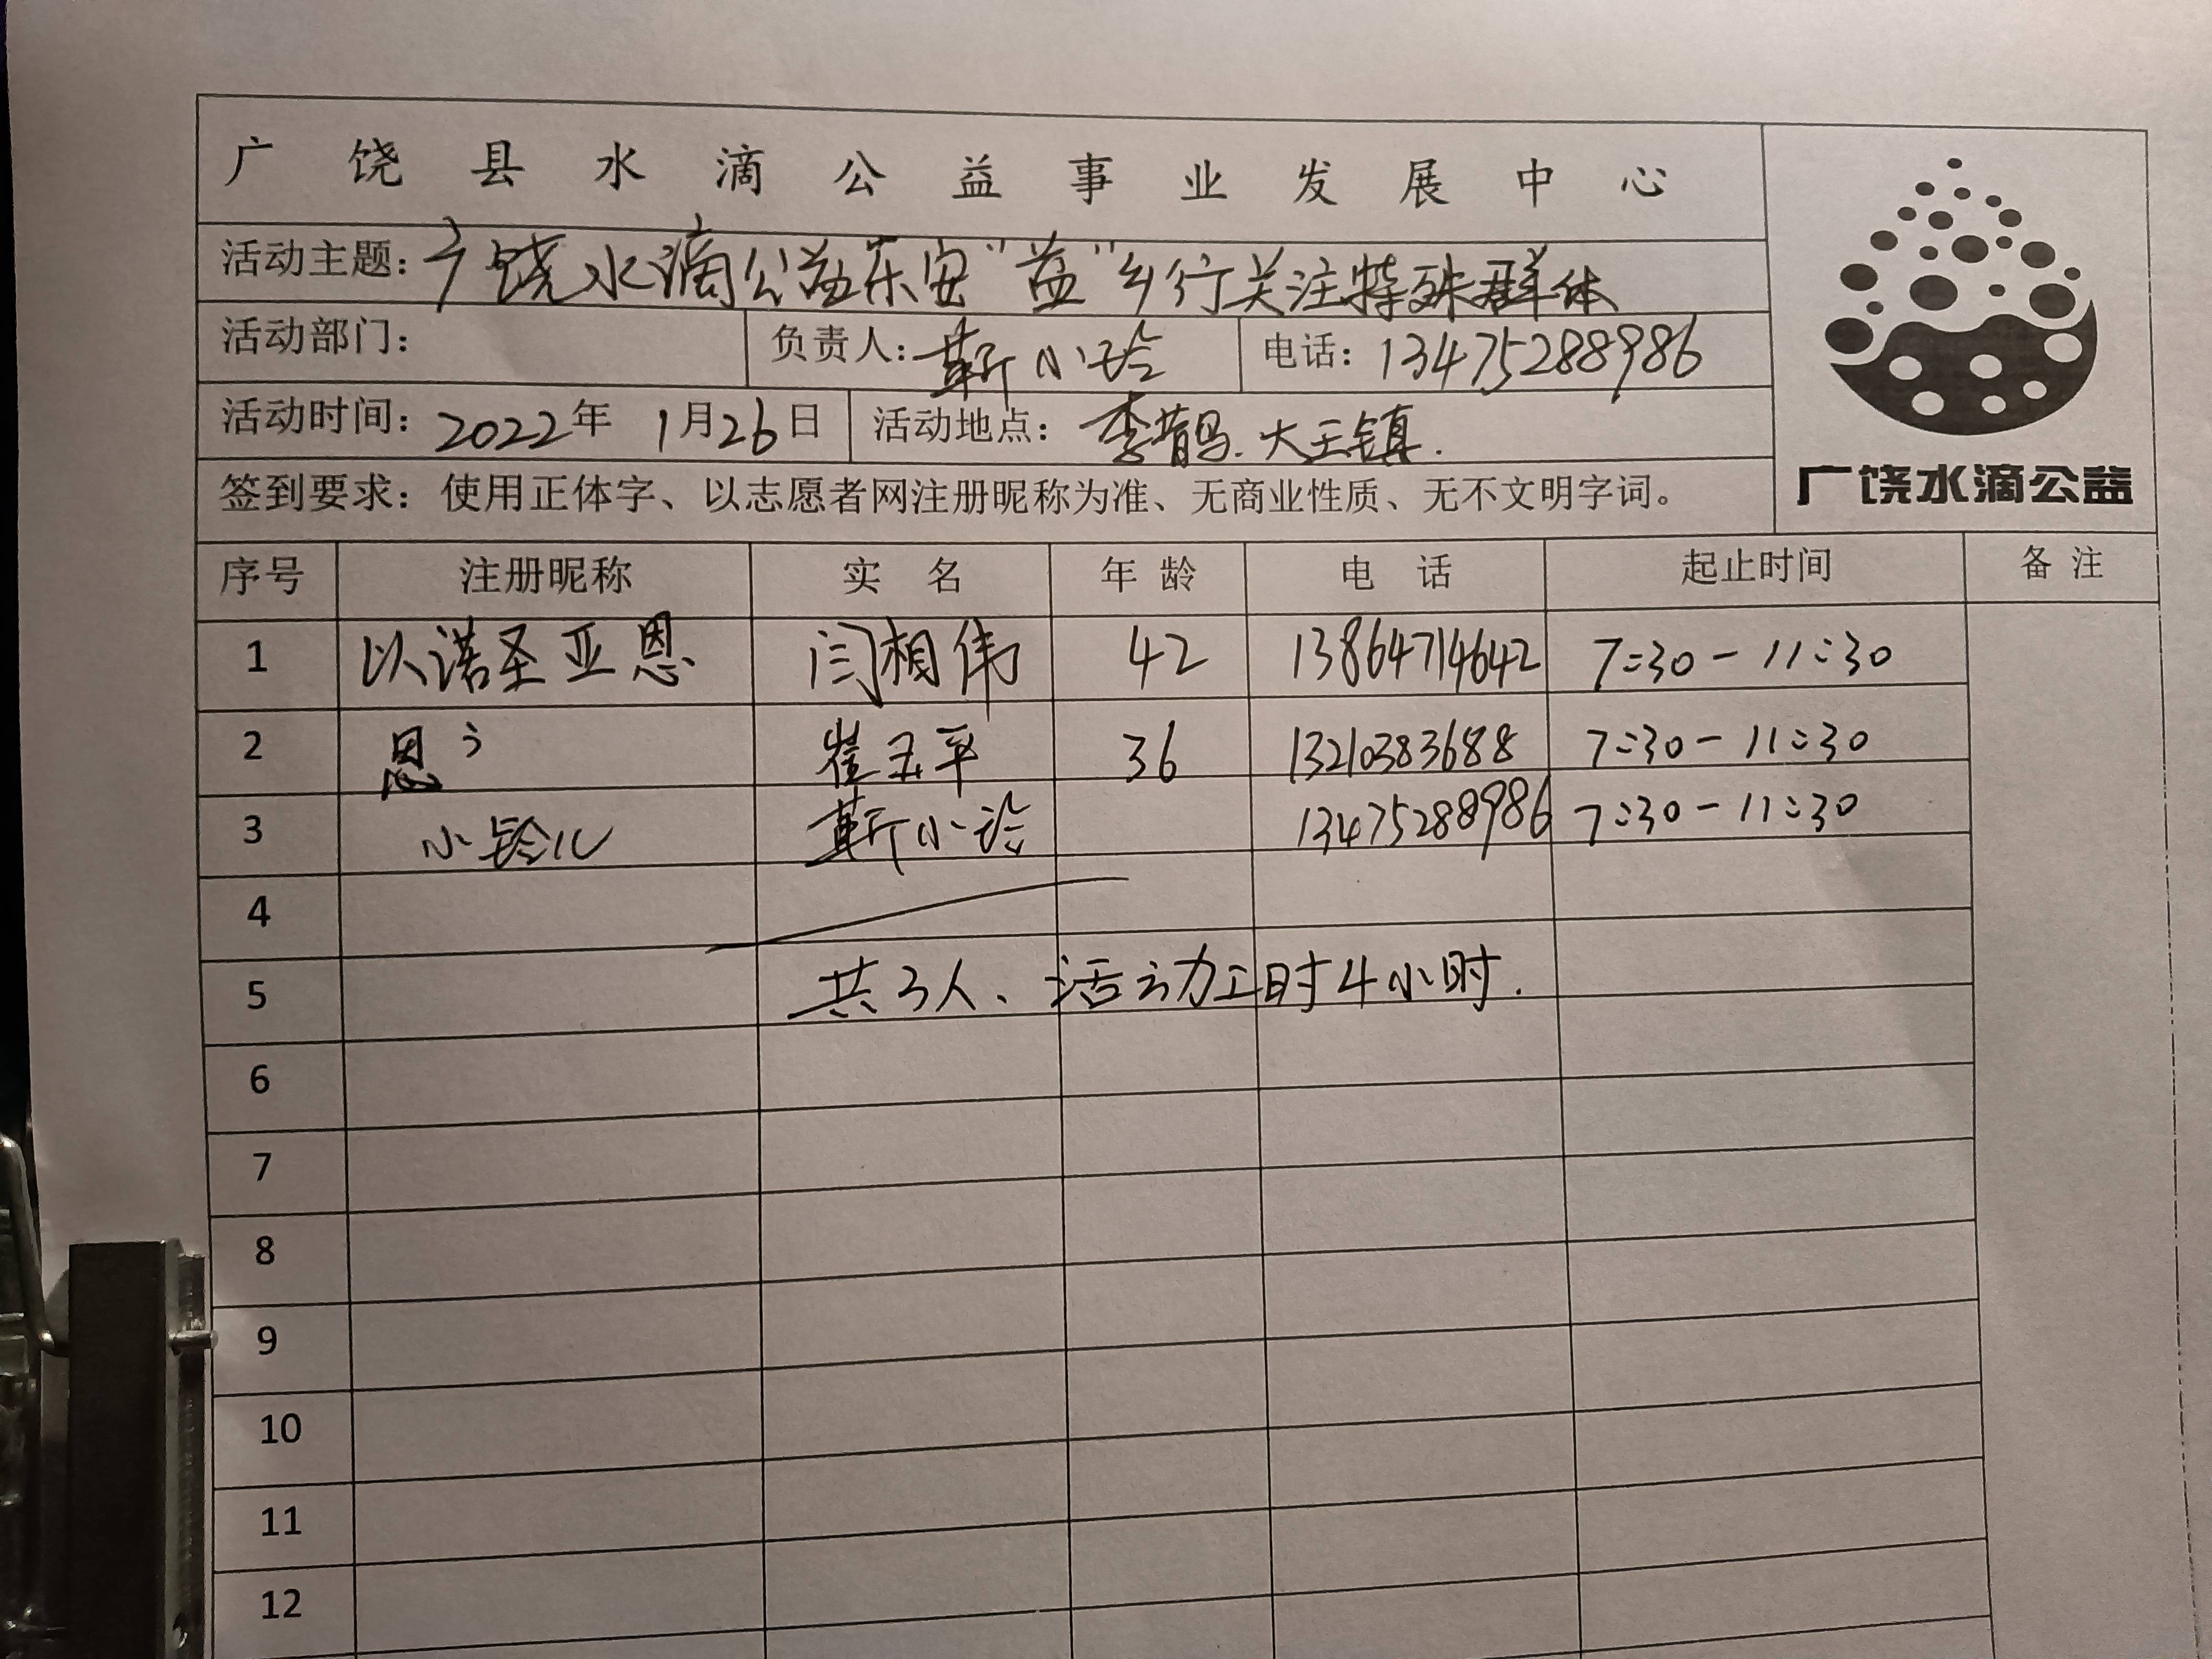 广饶县水滴公益事业发展中心
活动主题：广饶水滴公益乐安“益”乡行关注特殊群体
活动部门： 负责人：靳小玲 电话：13475288986
活动时间：2022年 1月26日 活动地点：李鹊.大王镇.
签到要求：使用正体字、以志愿者网注册昵称为准、无商业性质、无不文明字词。
广饶水滴公益
序号 注册昵称 实名 年龄 电话 起止时间 备注
1 以诺圣亚恩 闫相伟 42 13864714642 7:30-11:30
2 恩 崔玉平 36 13210383688 7:30-11:30
3 小铃儿 靳小玲 13475288986 7:30-11:30
4
5 共3人、活动工时4小时.
6
7
8
9
10
11
12